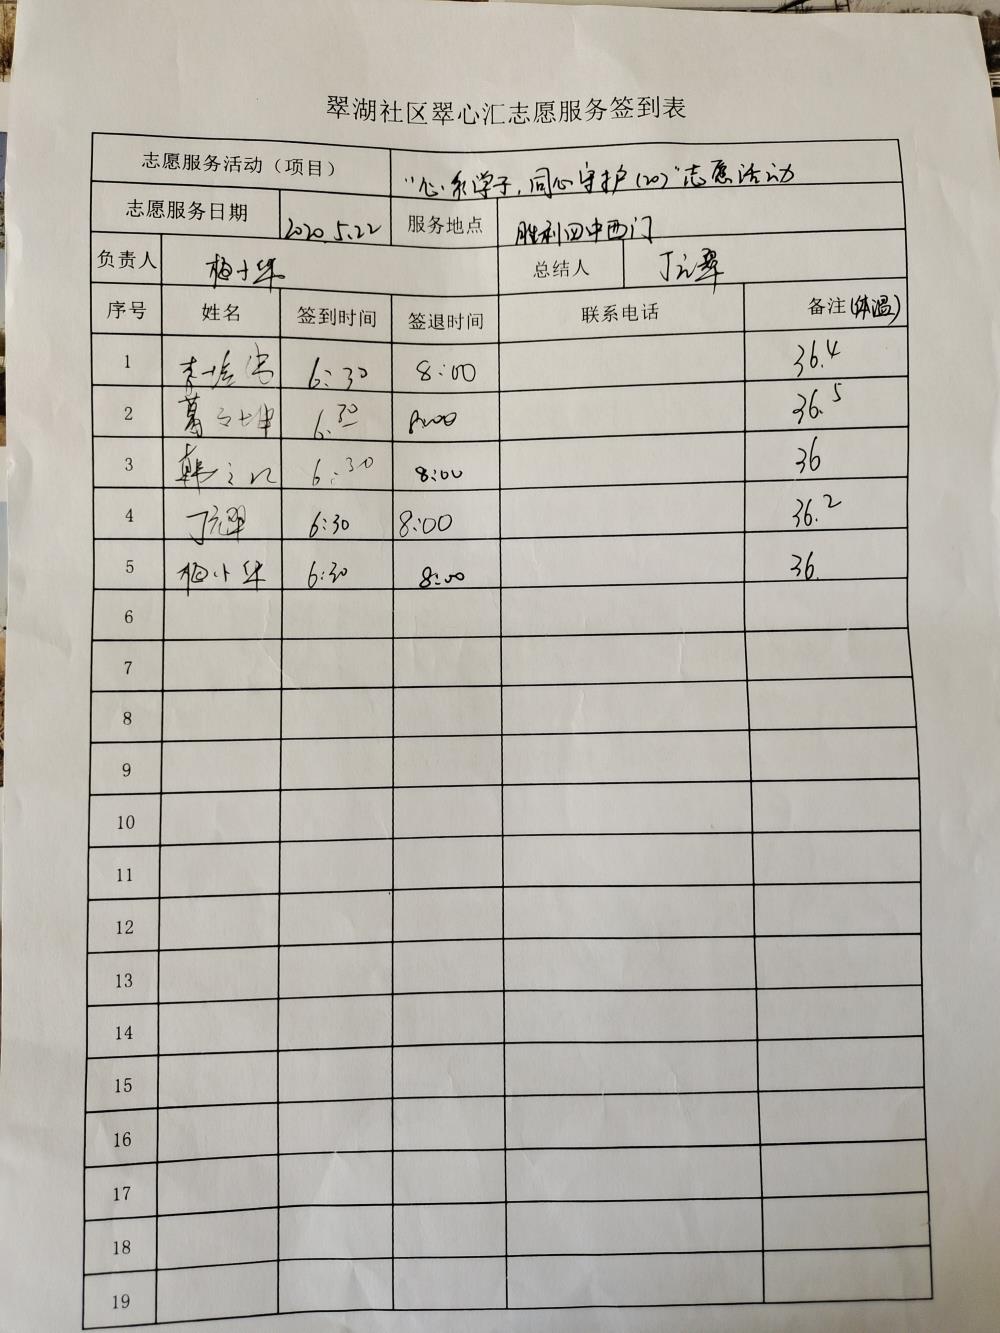 翠湖社区翠心汇志愿服务签到表
志愿服务活动（项目） "心系学子，同心守护（20）"志愿活动
志愿服务日期 2020.5.22 服务地点 胜利四中西门
负责人 梅小华 总结人 丁元翠
序号 姓名 签到时间 签退时间 联系电话 备注(体温)
1 李 6:30 8:00 36.4
2 葛 坤 6:30 8:00 36.5
3 韩 6:30 8:00 36
4 丁元翠 6:30 8:00 36.2
5 梅小华 6:30 8:00 36.
6
7
8
9
10
11
12
13
14
15
16
17
18
19